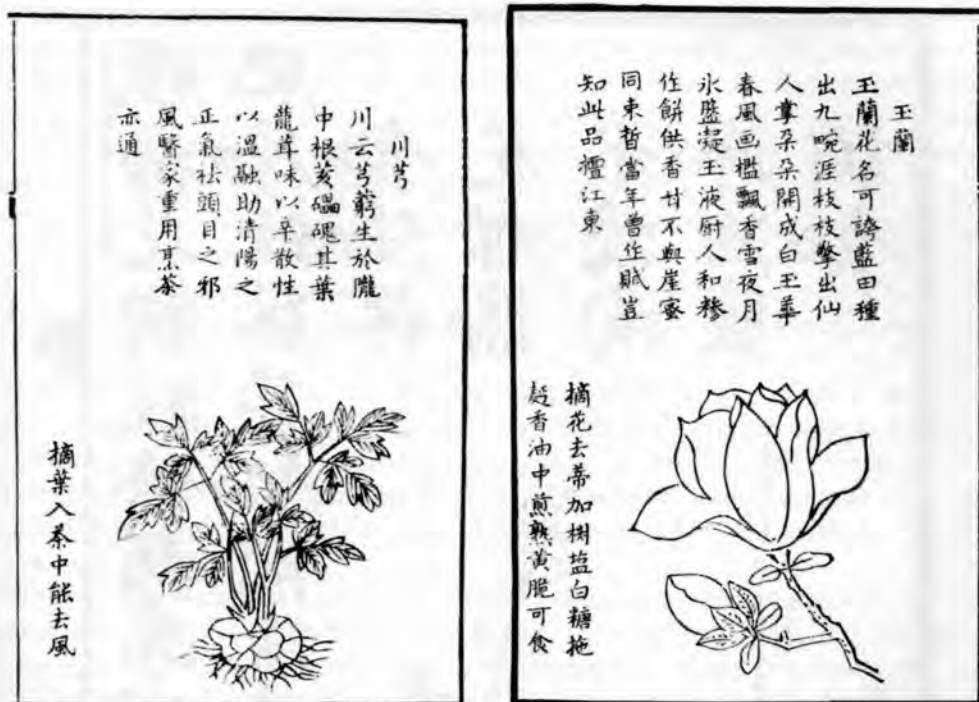 玉蘭
玉蘭花名可誇藍田種
出九畹涯枝枝擎出仙
人掌朶朶開成白玉華
春風画檻飄香雪夜月
氷盤凝玉液厨人和糝
作餅供香甘不與崖蜜
同束晳當年曽作賦豈
知此品擅江東
摘花去蒂加樹塩白糖拖
麪香油中煎熟黄脆可食
川芎
川云芎藭生於隴
中根荄磥磈其葉
蘢茸味以辛散性
以温融助清陽之
正氣祛頭目之邪
風醫家重用烹茶
亦通
摘葉入茶中能去風